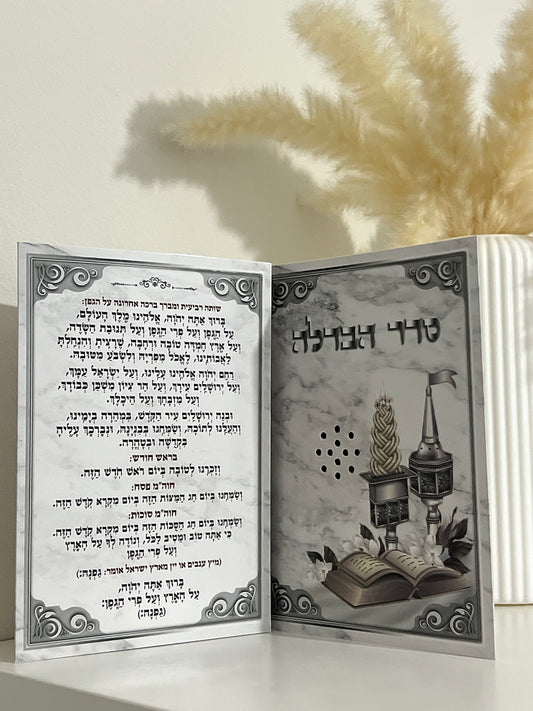 סדר הבדלה
שותה רביעית ומברך ברכה אחרונה על הגפן:
בָּרוּךְ אַתָּה יְהֹוָה, אֱלֹהֵינוּ מֶלֶךְ הָעוֹלָם,
עַל הַגֶּפֶן וְעַל פְּרִי הַגֶּפֶן וְעַל תְּנוּבַת הַשָּׂדֶה,
וְעַל אֶרֶץ חֶמְדָּה טוֹבָה וּרְחָבָה, שֶׁרָצִיתָ וְהִנְחַלְתָּ
לַאֲבוֹתֵינוּ, לֶאֱכֹל מִפִּרְיָהּ וְלִשְׂבֹּעַ מִטּוּבָהּ.
רַחֵם יְהֹוָה אֱלֹהֵינוּ עָלֵינוּ, וְעַל יִשְׂרָאֵל עַמָּךְ,
וְעַל יְרוּשָׁלַיִם עִירָךְ, וְעַל הַר צִיּוֹן מִשְׁכַּן כְּבוֹדָךְ,
וְעַל מִזְבָּחָךְ וְעַל הֵיכָלָךְ.
וּבְנֵה יְרוּשָׁלַיִם עִיר הַקֹּדֶשׁ, בִּמְהֵרָה בְיָמֵינוּ,
וְהַעֲלֵנוּ לְתוֹכָהּ, וְשַׂמְּחֵנוּ בְּבִנְיָנָהּ, וּנְבָרְכָךְ עָלֶיהָ
בִּקְדֻשָּׁה וּבְטָהֳרָה.
בראש חודש:
וְזָכְרֵנוּ לְטוֹבָה בְּיוֹם רֹאשׁ חֹדֶשׁ הַזֶּה.
חוה"מ פסח:
וְשַׂמְּחֵנוּ בְּיוֹם חַג הַמַּצּוֹת הַזֶּה בְּיוֹם מִקְרָא קֹדֶשׁ הַזֶּה.
חוה"מ סוכות:
וְשַׂמְּחֵנוּ בְּיוֹם חַג הַסֻּכּוֹת הַזֶּה בְּיוֹם מִקְרָא קֹדֶשׁ הַזֶּה.
כִּי אַתָּה טוֹב וּמֵטִיב לַכֹּל, וְנוֹדֶה לְּךָ עַל הָאָרֶץ
וְעַל פְּרִי הַגֶּפֶן
(מיץ ענבים או יין מארץ ישראל אומר: גַפְנָהּ:)
בָּרוּךְ אַתָּה יְהֹוָה,
עַל הָאָרֶץ וְעַל פְּרִי הַגֶּפֶן:
(גַפְנָהּ:)